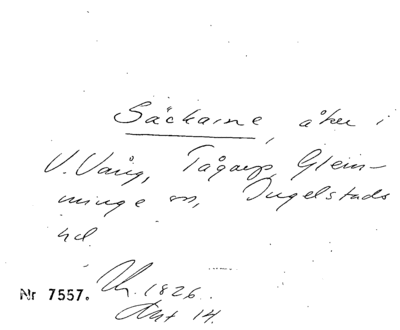 Säckarne, åker i
V. Vång, Tågarp, Glem-
minge sn, Ingelstads
hd.
Nr 7557. Lm. 1826.
Akt 14.